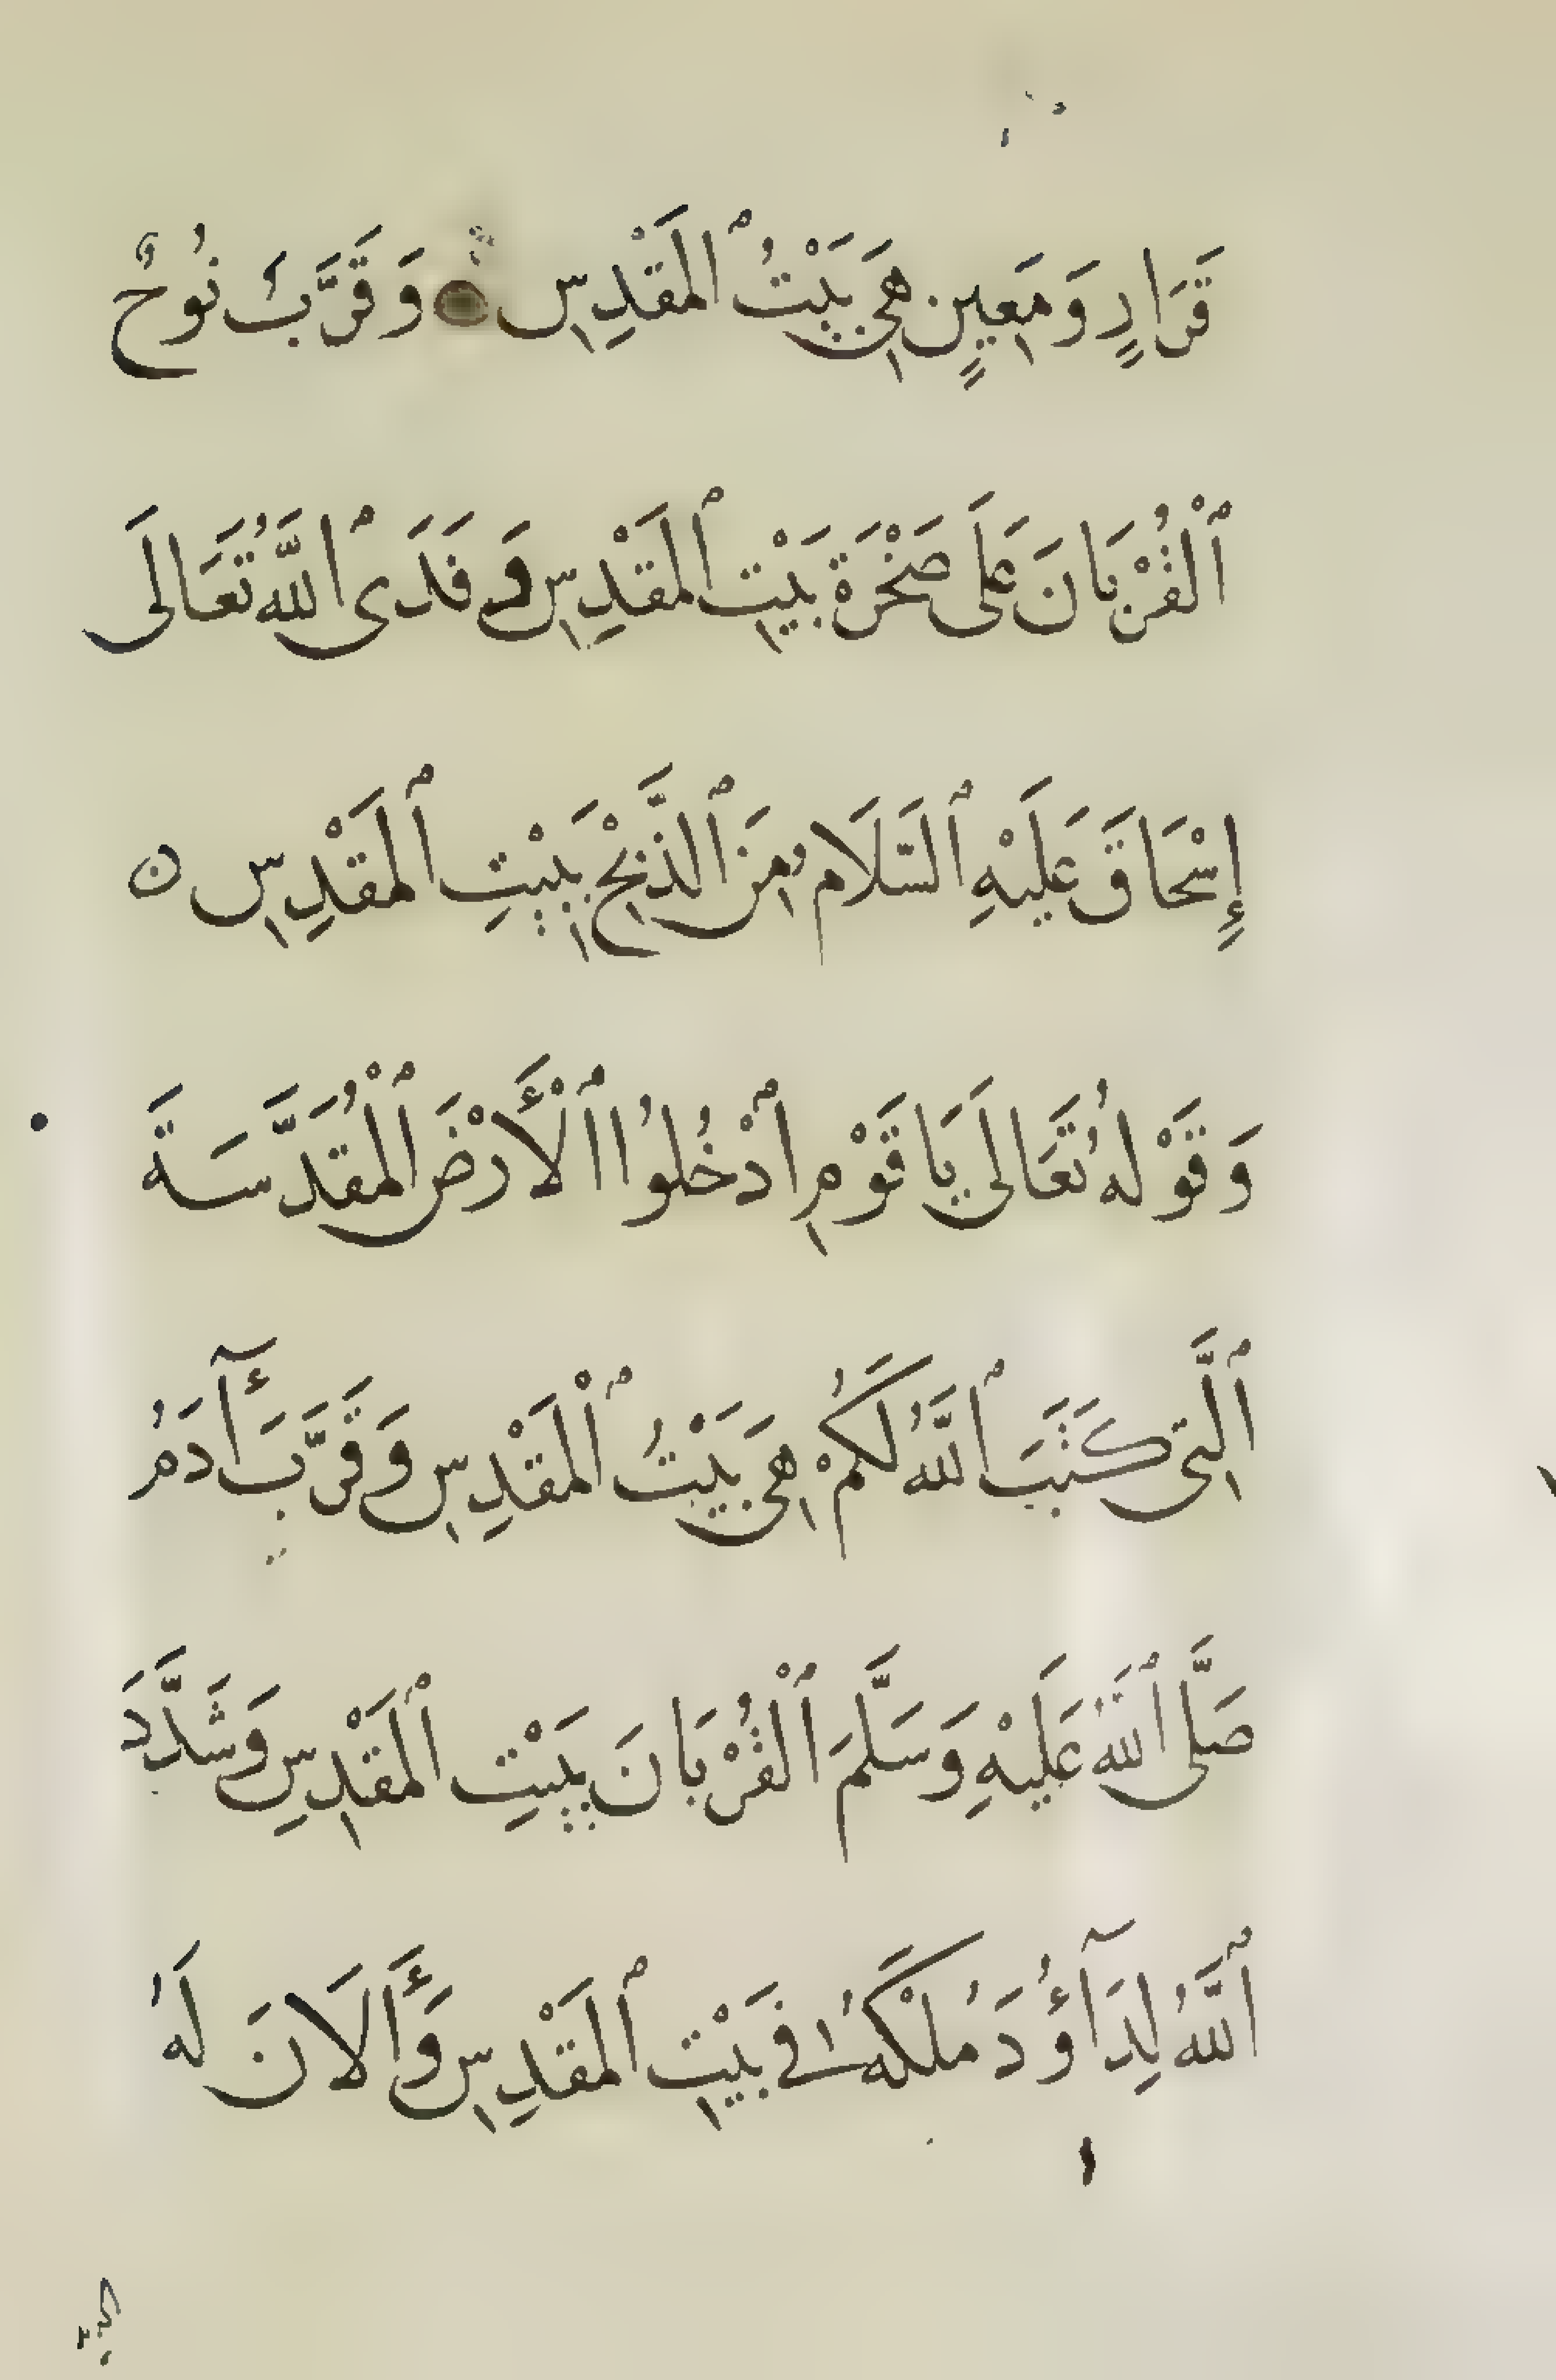 قَرَارٍ وَمَعِينٍ هِيَ بَيْتُ ٱلمَقْدِسِ وَقَرَّبَ نُوحٌ
ٱلْقُرْبَانَ عَلَى صَخْرَةِ بَيْتِ ٱلمَقْدِسِ وَفَدَى ٱللَّهُ تَعَالَى
إِسْحَاقَ عَلَيْهِ ٱلسَّلَامُ مِنَ ٱلذَّبْحِ بِبَيْتِ ٱلمَقْدِسِ ن
وَقَوْلُهُ تَعَالَى يَا قَوْمِ ٱدْخُلُوا ٱلْأَرْضَ ٱلْمُقَدَّسَةَ
ٱلَّتِي كَتَبَ ٱللَّهُ لَكُمْ هِيَ بَيْتُ ٱلْمَقْدِسِ وَقَرَّبَ أٓدَمُ
صَلَّى ٱللَّهُ عَلَيْهِ وَسَلَّمَ ٱلْقُرْبَانَ بِبَيْتِ ٱلْمَقْدِسِ وَشَدَّدَ
ٱللَّهُ لِدَآؤُدَ مُلْكَهُ فِي بَيْتِ ٱلمَقْدِسِ وَأَلَانَ لَهُ